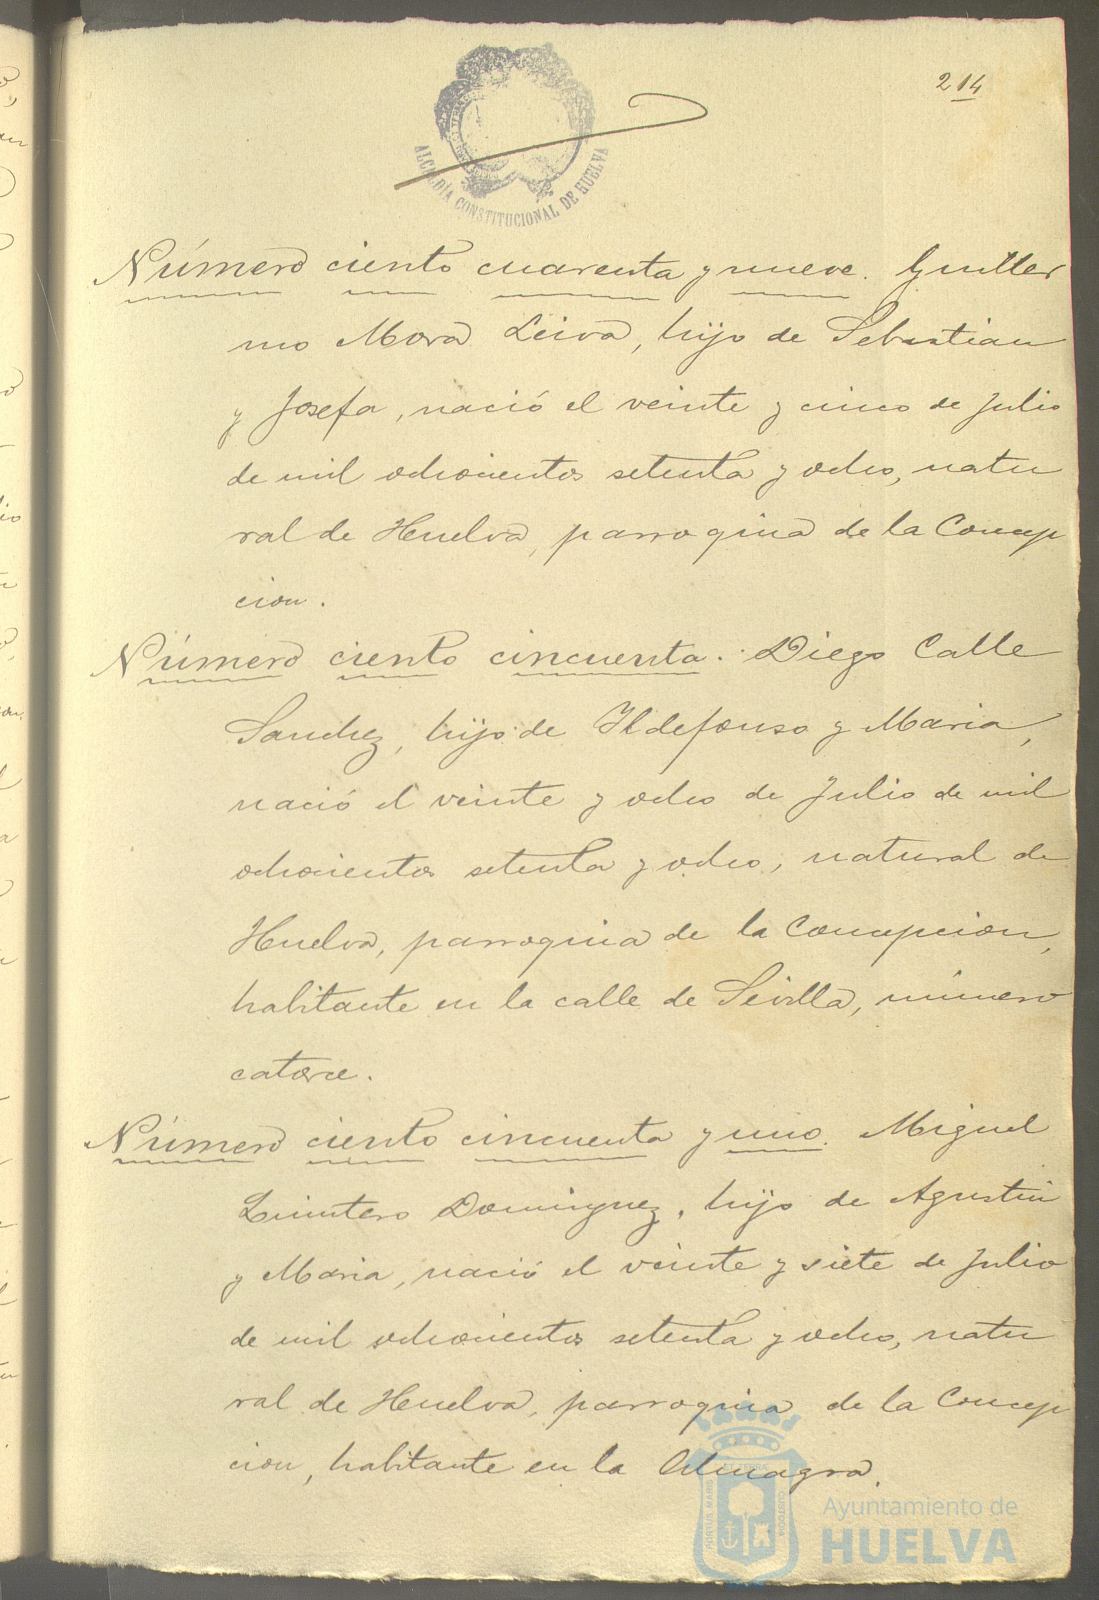 214
ALCALDÍA CONSTITUCIONAL DE HUELVA
Número ciento cuarenta y nueve. Guiller
mo Mora Leiva, hijo de Sebastian
y Josefa, nació el veinte y cinco de Julio
de mil ochocientos setenta y ocho, natu
ral de Huelva, parroquia de la Concep
cion.
Número ciento cincuenta. Diego Calle
Sanchez, hijo de Ildefonso y Maria,
nació el veinte y ocho de Julio de mil
ochocientos setenta y ocho, natural de
Huelva, parroquia de la Concepcion,
habitante en la calle de Sevilla, número
catorce.
Número ciento cincuenta y uno. Miguel
Quintero Dominguez, hijo de Agustin
y Maria, nació el veinte y siete de Julio
de mil ochocientos setenta y ocho, natu
ral de Huelva, parroquia de la Concep
cion, habitante en la Almagra.
PORTUS MARIS ET TERRAE CUSTODIA
Ayuntamiento de
HUELVA